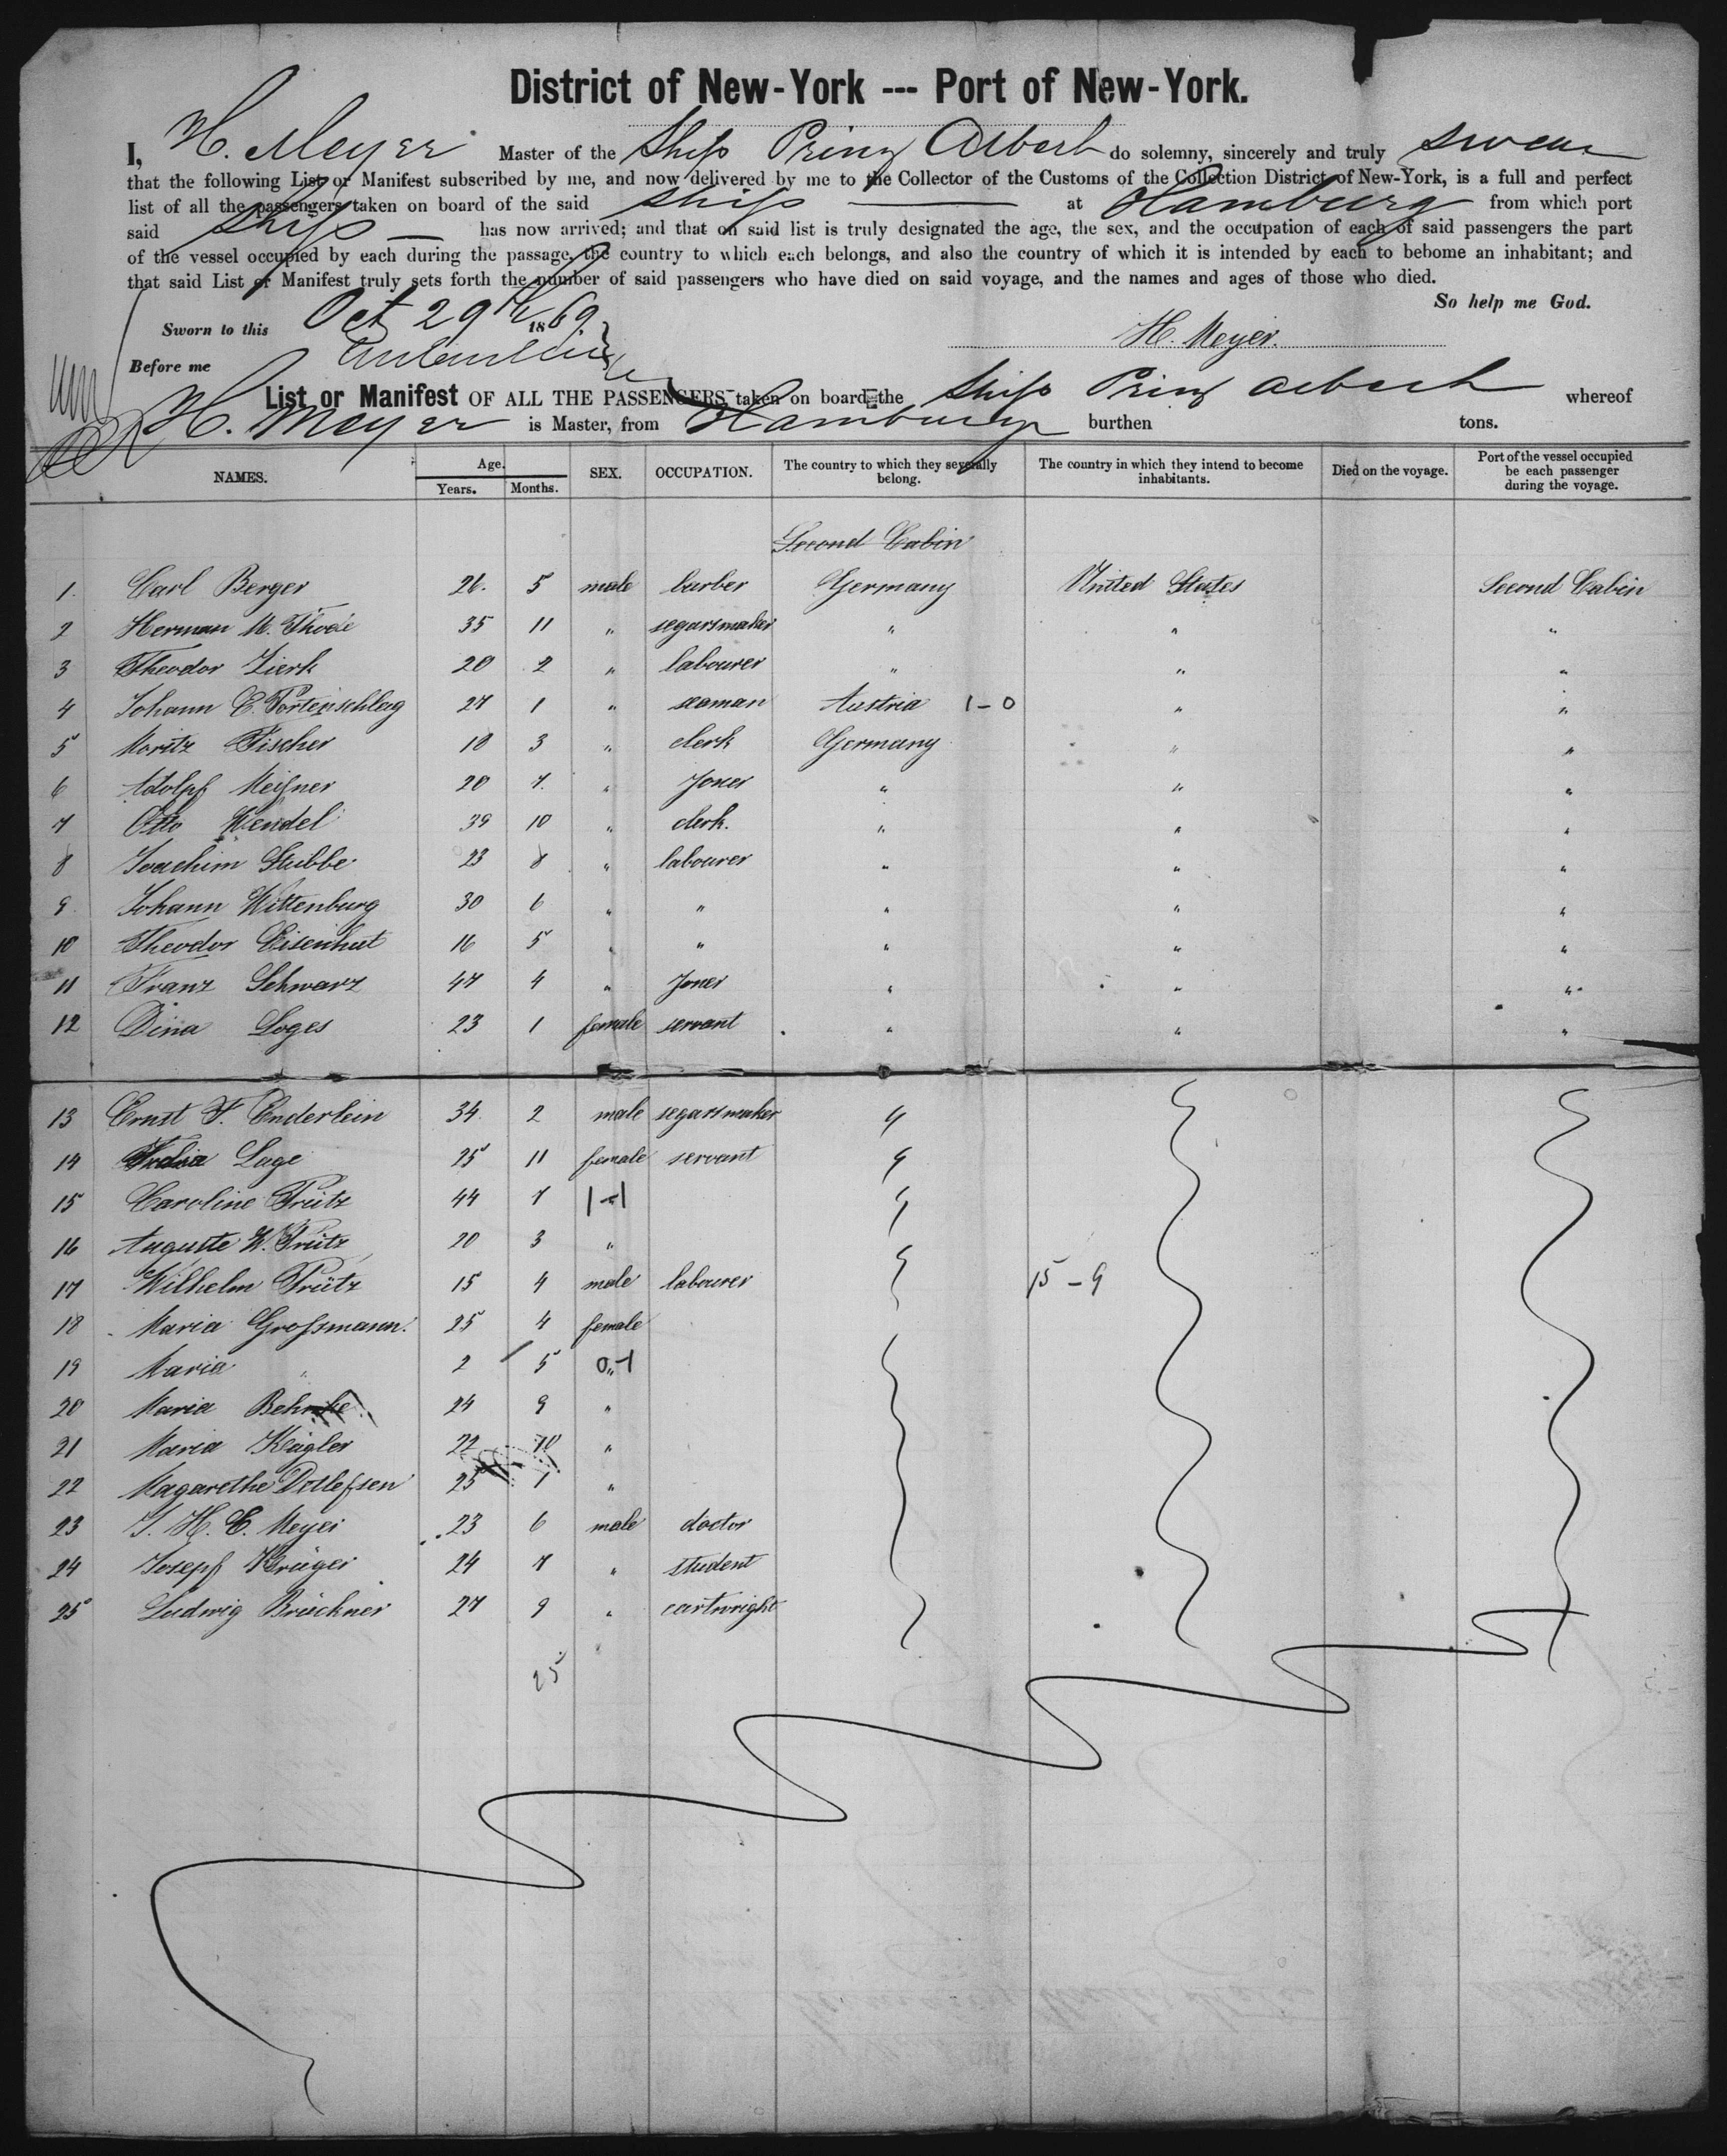 District of New-York --- Port of New-York.
I, H. Meyer Master of the Ship Prinz Albert do solemny, sincerely and truly swear
that the following List or Manifest subscribed by me, and now delivered by me to the Collector of the Customs of the Collection District of New-York, is a full and perfect
list of all the passengers taken on board of the said Ship at Hamburg from which port
said Ship has now arrived; and that on said list is truly designated the age, the sex, and the occupation of each of said passengers the part
of the vessel occupied by each during the passage, the country to which each belongs, and also the country of which it is intended by each to bebome an inhabitant; and
that said List or Manifest truly sets forth the number of said passengers who have died on said voyage, and the names and ages of those who died.
So help me God.
Sworn to this Oct 29th 1869.
H. Meyer.
Before me
List or Manifest OF ALL THE PASSENGERS taken on board the Ship Prinz Albert whereof
H. Meyer is Master, from Hamburg burthen tons.
NAMES. Age. Years. Months. SEX. OCCUPATION. The country to which they severally belong. The country in which they intend to become inhabitants. Died on the voyage. Port of the vessel occupied be each passenger during the voyage.
Second Cabin
1. Carl Berger 26. 5 male barber Germany United States Second Cabin
2 Herman M. Thode 35 11 " segarsmaker " " "
3 Theodor Zierk 20 2 " labourer " " "
4 Johann C. Portenschlag 27 1 " seaman Austria 1-0 " "
5 Moritz Fischer 18 3 " clerk Germany " "
6 Adolpf Meißner 20 7. " Joner " " "
7 Otto Wendel 39 10 " clerk. " " "
8 Joachim Stibbe 23 8 " labourer " " "
9. Johann Wittenburg 30 6 " " " " "
10 Theodor Eisenhut 16 5 " " " " "
11 Franz Schwarz 47 4 " Joner " " "
12 Dina Loges 23 1 female servant " " "
13 Ernst F. Enderlein 34 2 male segarsmaker
14 Lage 25 11 female servant
15 Caroline Prütz 44 7 1-1
16 Auguste W. Prütz 20 3 "
17 Wilhelm Prütz 15 4 male labourer 15-9
18 Maria Großmann. 25 4 female
19 Maria " 2 5 0-1
20 Maria Behnke 24 9 "
21 Maria Kägler 22 10 "
22 Magarethe Detlefsen 25 1 "
23 J. H. C. Meyer 23 6 male doctor
24 Josepf Krüger 24 7 " student
25 Ludwig Brückner 27 9 " cartwright
25